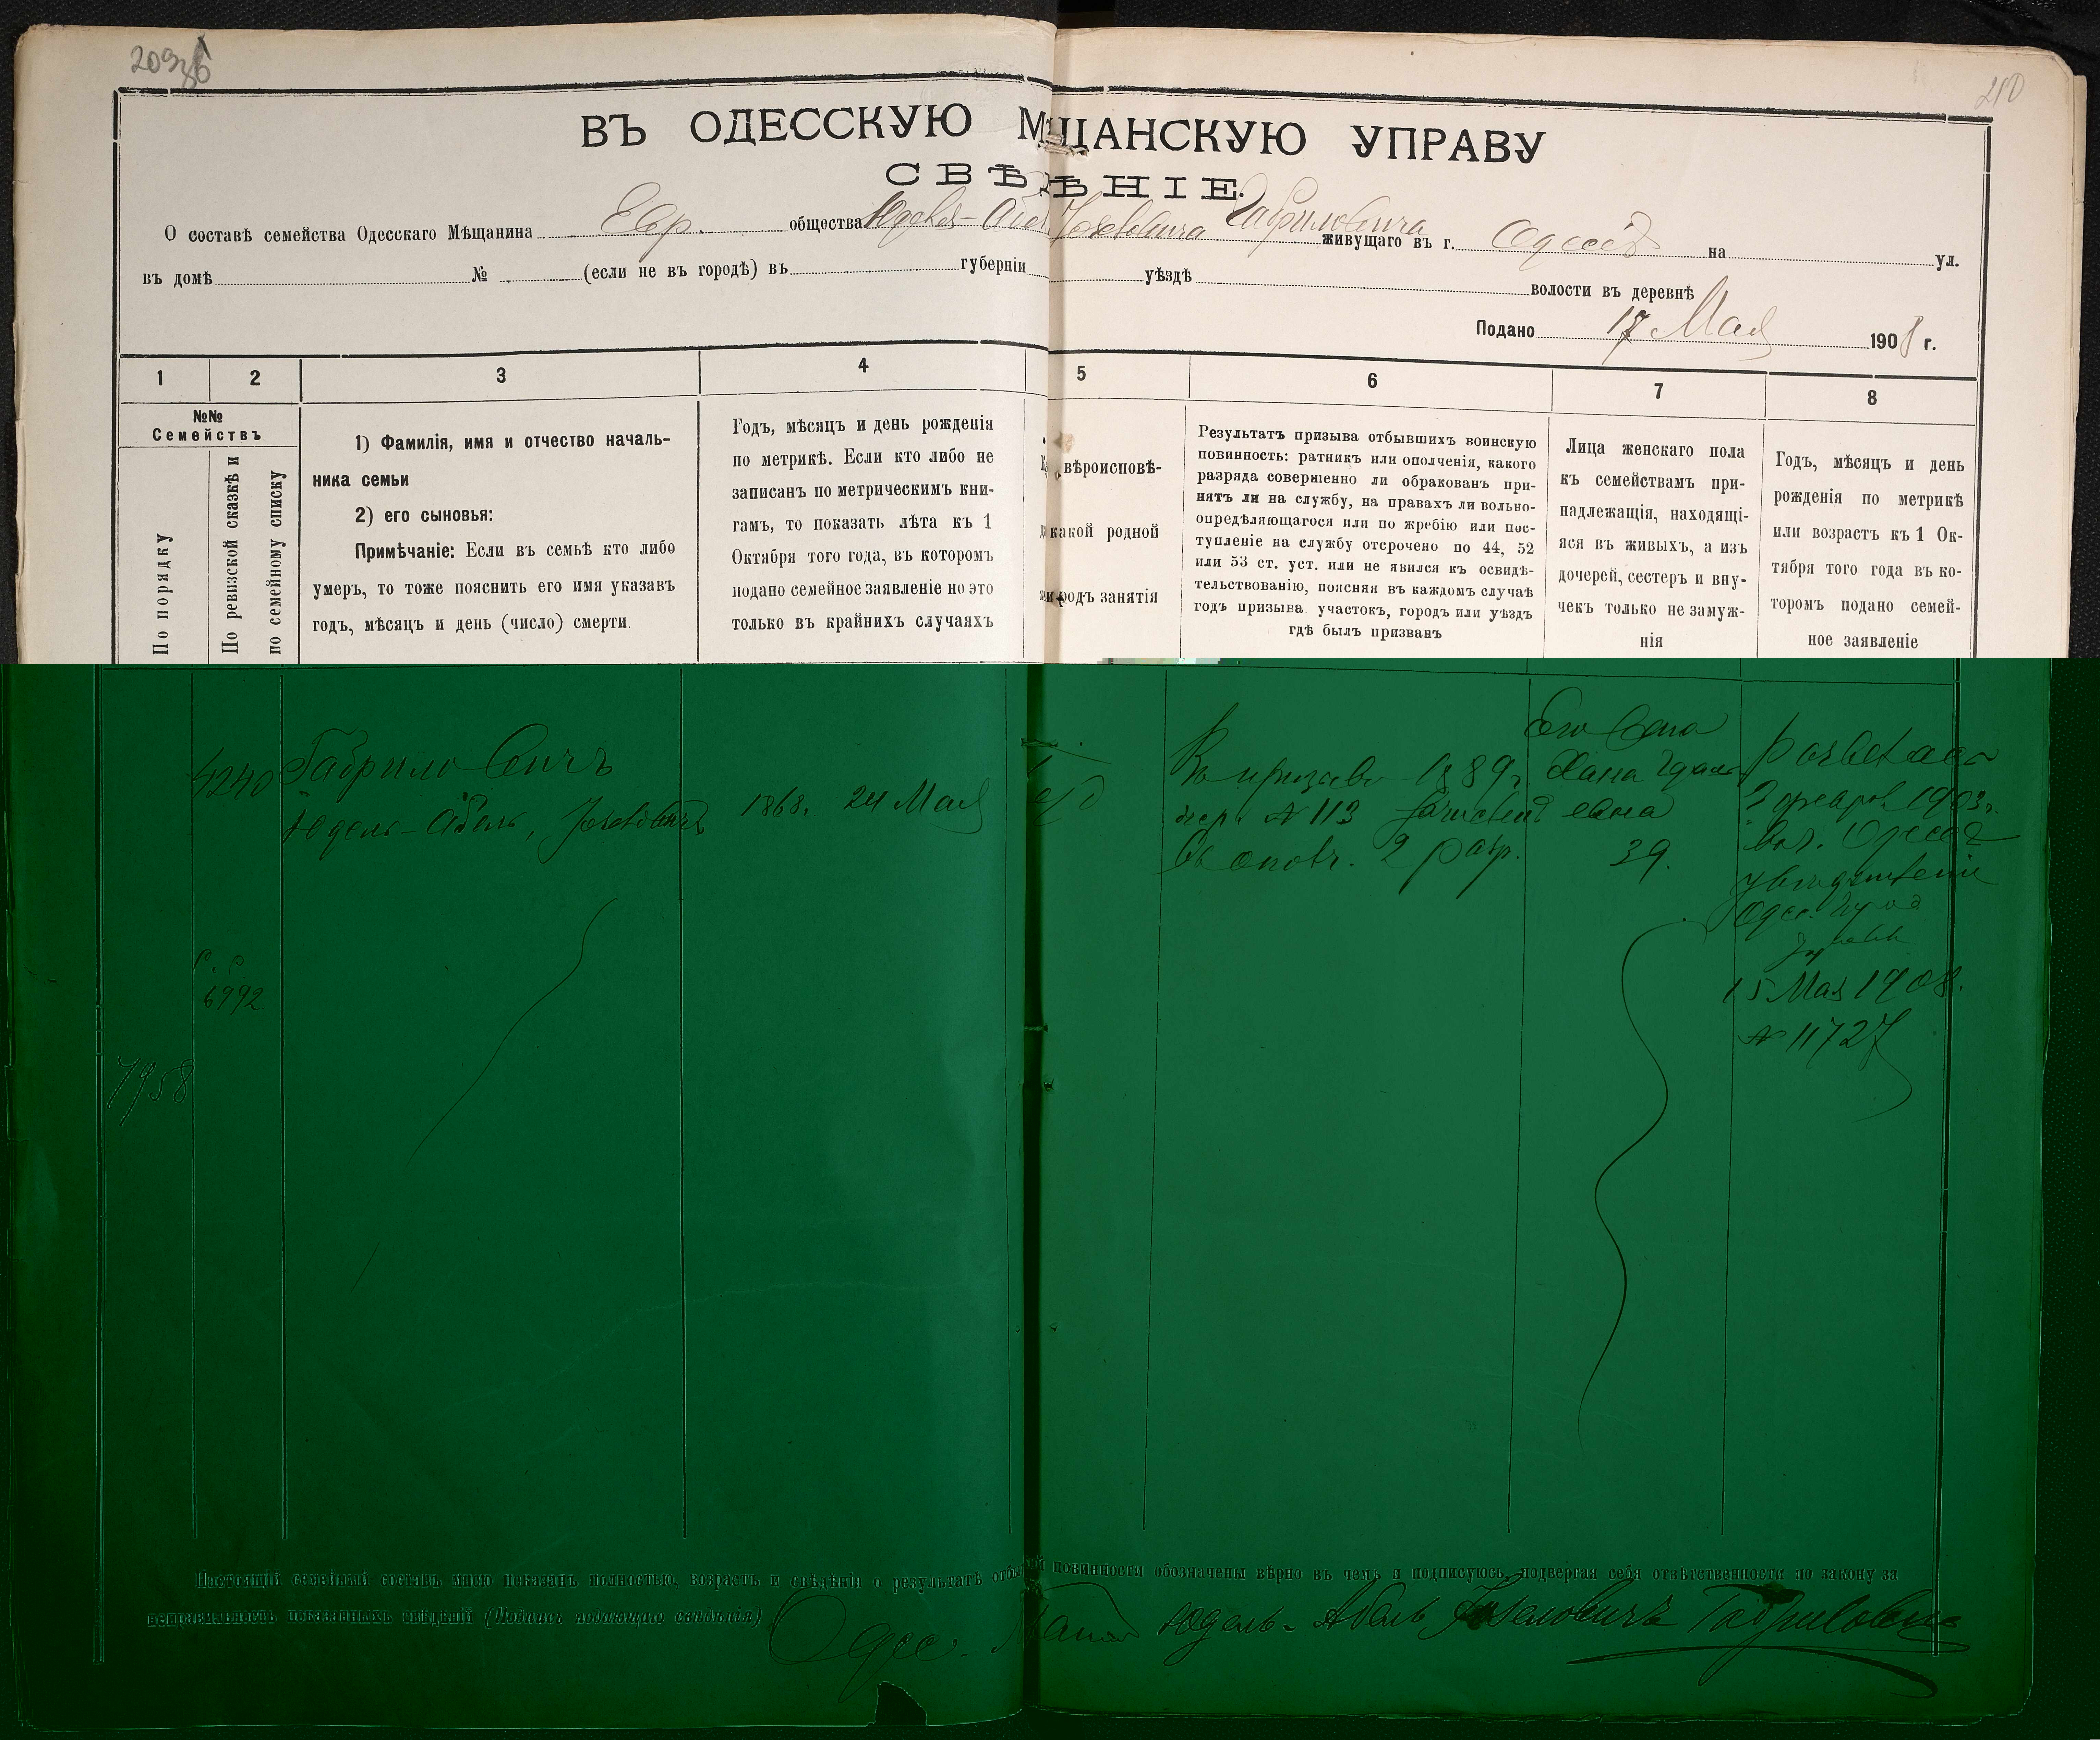 209 об
210
ВЪ ОДЕССКУЮ МѢЩАНСКУЮ УПРАВУ
СВѢДѢНІЕ.
О составѣ семейства Одесскаго Мѣщанина Евр. общества Юделя-Абеля Іоселевича Гавриловича живущаго въ г. Одессѣ на ул.
въ домѣ № (если не въ городѣ) въ губерніи уѣздѣ волости въ деревнѣ
Подано 17 Мая 1908 г.
1 2 3 4 5 6 7 8
№№
Семействъ
По порядку
По ревизской сказкѣ и
по семейному списку
1) Фамилія, имя и отчество началь-
ника семьи
2) его сыновья:
Примѣчаніе: Если въ семьѣ кто либо
умеръ, то тоже пояснить его имя указавъ
годъ, мѣсяцъ и день (число) смерти.
Годъ, мѣсяцъ и день рожденія
по метрикѣ. Если кто либо не
записанъ по метрическимъ кни-
гамъ, то показать лѣта къ 1
Октября того года, въ которомъ
подано семейное заявленіе но это
только въ крайнихъ случаяхъ
вѣроисповѣ-
какой родной
и родъ занятія
Результатъ призыва отбывшихъ воинскую
повинность: ратникъ или ополченія, какого
разряда совершенно ли обракованъ при-
нятъ ли на службу, на правахъ ли вольно-
опредѣляющагося или по жребію или пос-
тупленіе на службу отсрочено по 44, 52
или 53 ст. уст. или не явился къ освидѣ-
тельствованію, поясняя въ каждомъ случаѣ
годъ призыва участокъ, городъ или уѣздъ
гдѣ былъ призванъ
Лица женскаго пола
къ семействамъ при-
надлежащія, находящі-
яся въ живыхъ, а изъ
дочерей, сестеръ и вну-
чекъ только не замуж-
нія
Годъ, мѣсяцъ и день
рожденія по метрикѣ
или возрастъ къ 1 Ок-
тября того года въ ко-
торомъ подано семей-
ное заявленіе
4240
Гавриловичъ
Юдель-Абель, Іоселевичъ
1868. 24 Мая
Въ призывъ 1889 г.
жер. № 113 Зачисленъ
въ ополч. 2 разр.
Его жена
Хана Гдаль
евна
39.
2 февраля 1903 г.
въ г. Одессѣ
Одес. Город
15 Мая 1908.
№ 11727
Р. С.
6992
7958
Настоящій семейный составъ мною показанъ полностью, возрастъ и свѣдѣнія о результатѣ отбытой повинности обозначены вѣрно въ чемъ и подписуюсь, подвергая себя отвѣтственности по закону за
неправильность показанныхъ свѣдѣній (Подпись подающаго свѣдѣнія)
Одес. Мѣщан Юдель-Абель Іоселовичъ Гавриловичъ